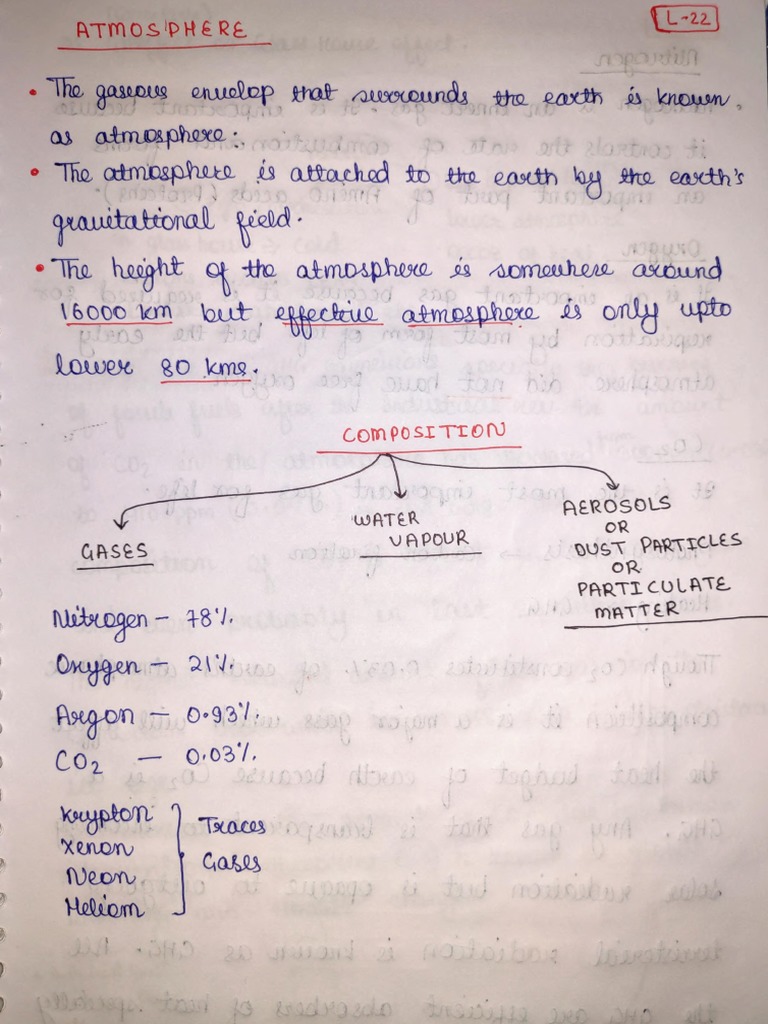 ATMOSPHERE
L-22
• The gaseous envelop that surrounds the earth is known
as atmosphere.
• The atmosphere is attached to the earth by the earth's
gravitational field.
• The height of the atmosphere is somewhere around
16000 km but effective atmosphere is only upto
lower 80 kms.
COMPOSITION
GASES
WATER
VAPOUR
AEROSOLS
OR
DUST PARTICLES
OR
PARTICULATE
MATTER
Nitrogen — 78%
Oxygen — 21%
Argon — 0.93%
CO2 — 0.03%
Krypton
Xenon
Neon
Heliom
Traces
Gases